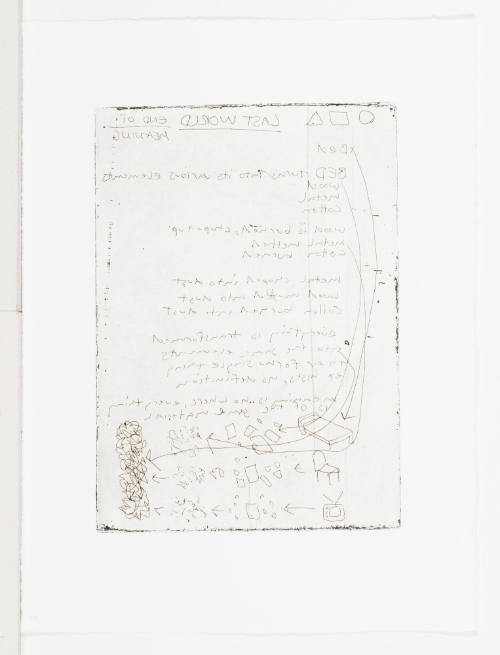 LAST WORLD END OF:
MEANING
BED
BED turns into its various elements
wood
metal
cotton
wood is burned, chopped up
metal melted
Coton burned
metal choped into dust
wood into dust
Cotton burned into dust
everything is transformed
into the same elements
they form no single thing
or no definition
meaning is no where, everything
is of the same material